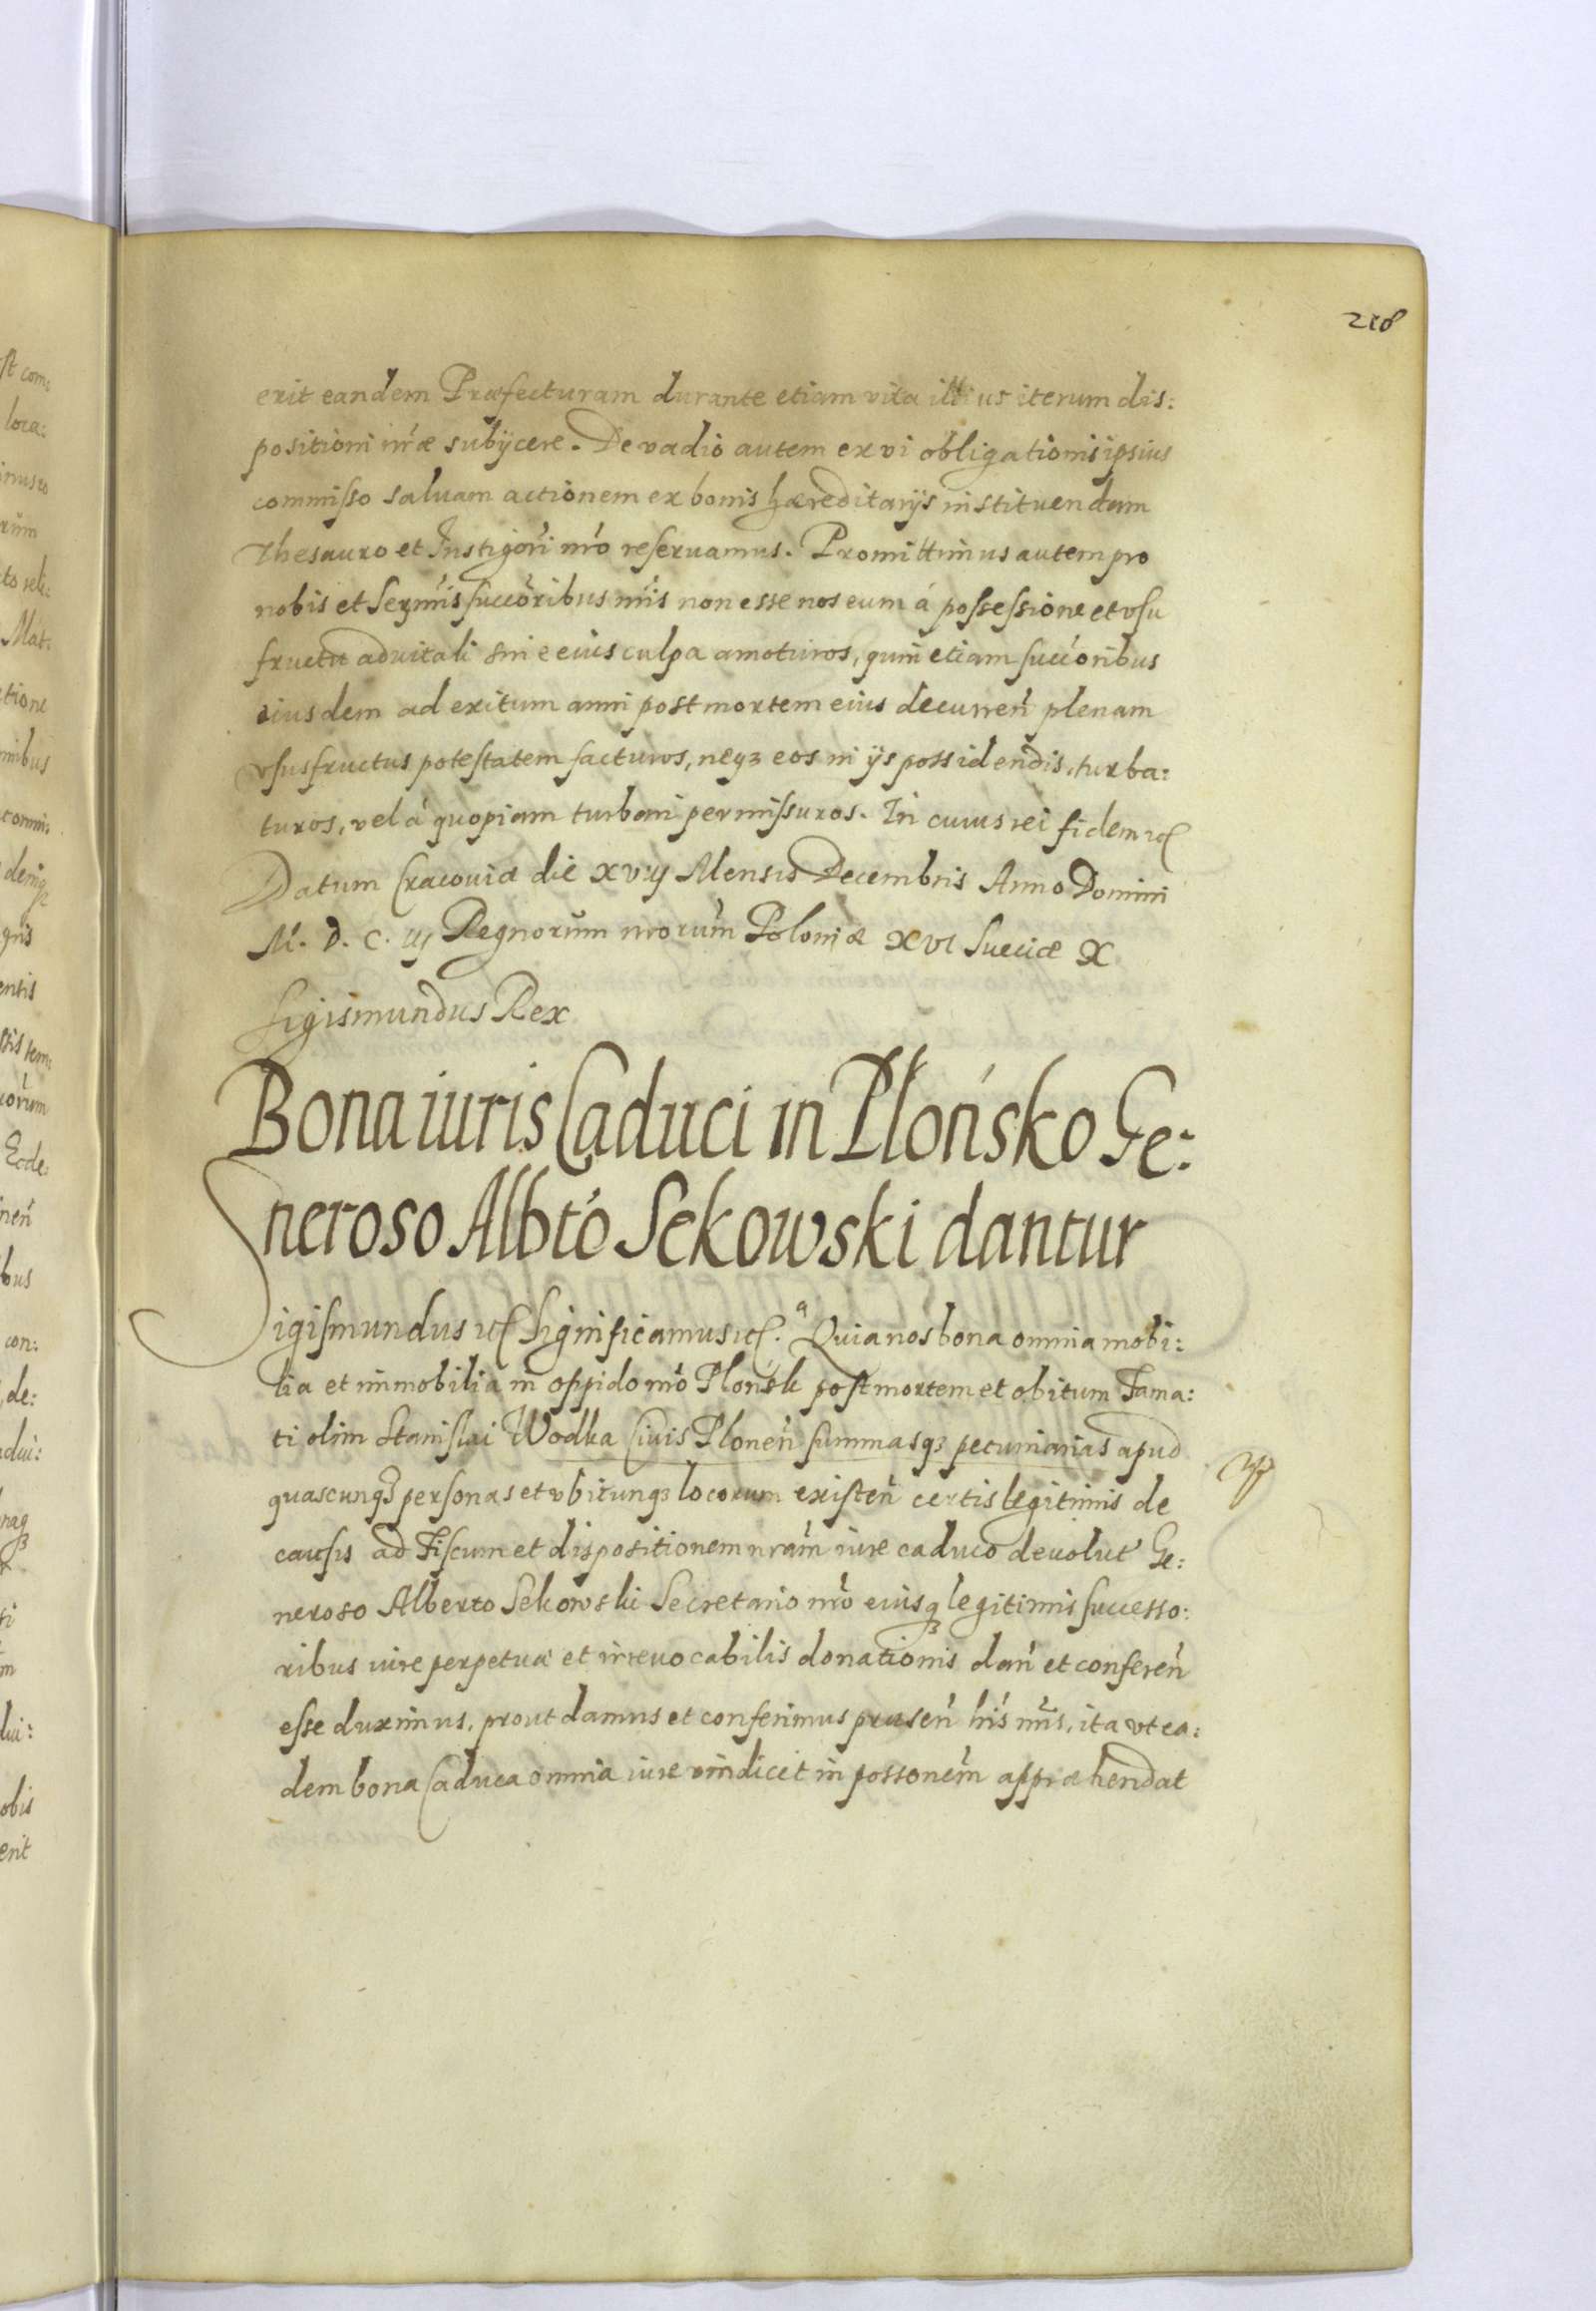 218
erit eandem Præfecturam durante etiam vita illius iterum dis:
positioni nr̃æ subijcere. De vadio autem ex vi obligationis ipsius
commisso saluam actionem ex bonis hæreditarijs instituendam
Thesauro et Instigori nr̃o reseruamus. Promittimus autem pro
nobis et Sermis succoribus nr̃is non esse nos eum á possessione et vsu
fructu aduitali sine eius culpa amoturos, quin etiam succoribus
eiusdem ad exitum anni post mortem eius decurreñ plenam
vsusfructus potestatem facturos, neqз eos in ijs possidendis, turba:
turos, vel á quopiam turbari permissuros. In cuius rei fidem etc
Datum Cracouiæ die xvij Mensis Decembris Anno Domini
M. D. C. iij Regnorum nrorum Poloniæ XVI Sueciæ X
Sigismundus Rex
Bona iuris Caduci in Płońsko Ge:
neroso Albto Sekowski dantur
Sigismundus etc Significamus etc. Quia nos bona omnia mobi:
lia et immobilia in oppido nr̃o Plońsk post mortem et obitum Fama:
ti olim Stanislai Wodka Ciuis Ploneñ summasqз pecuniarias apud
quascunqз personas et vbicunqз locorum existeñ certis legitimis de
causis ad Fiscum et dispositionem nram iure caduco deuolut Ge:
neroso Alberto Sekowski Secretario nr̃o eiusqз legitimis successo:
ribus iure perpetuæ et irreuocabilis donationis dañ et confereñ
esse duximus, prout damus et conferimus præseñ hís nr̃is, ita vt ea:
dem bona Caduca omnia iure vindicet in possonem appræhendat